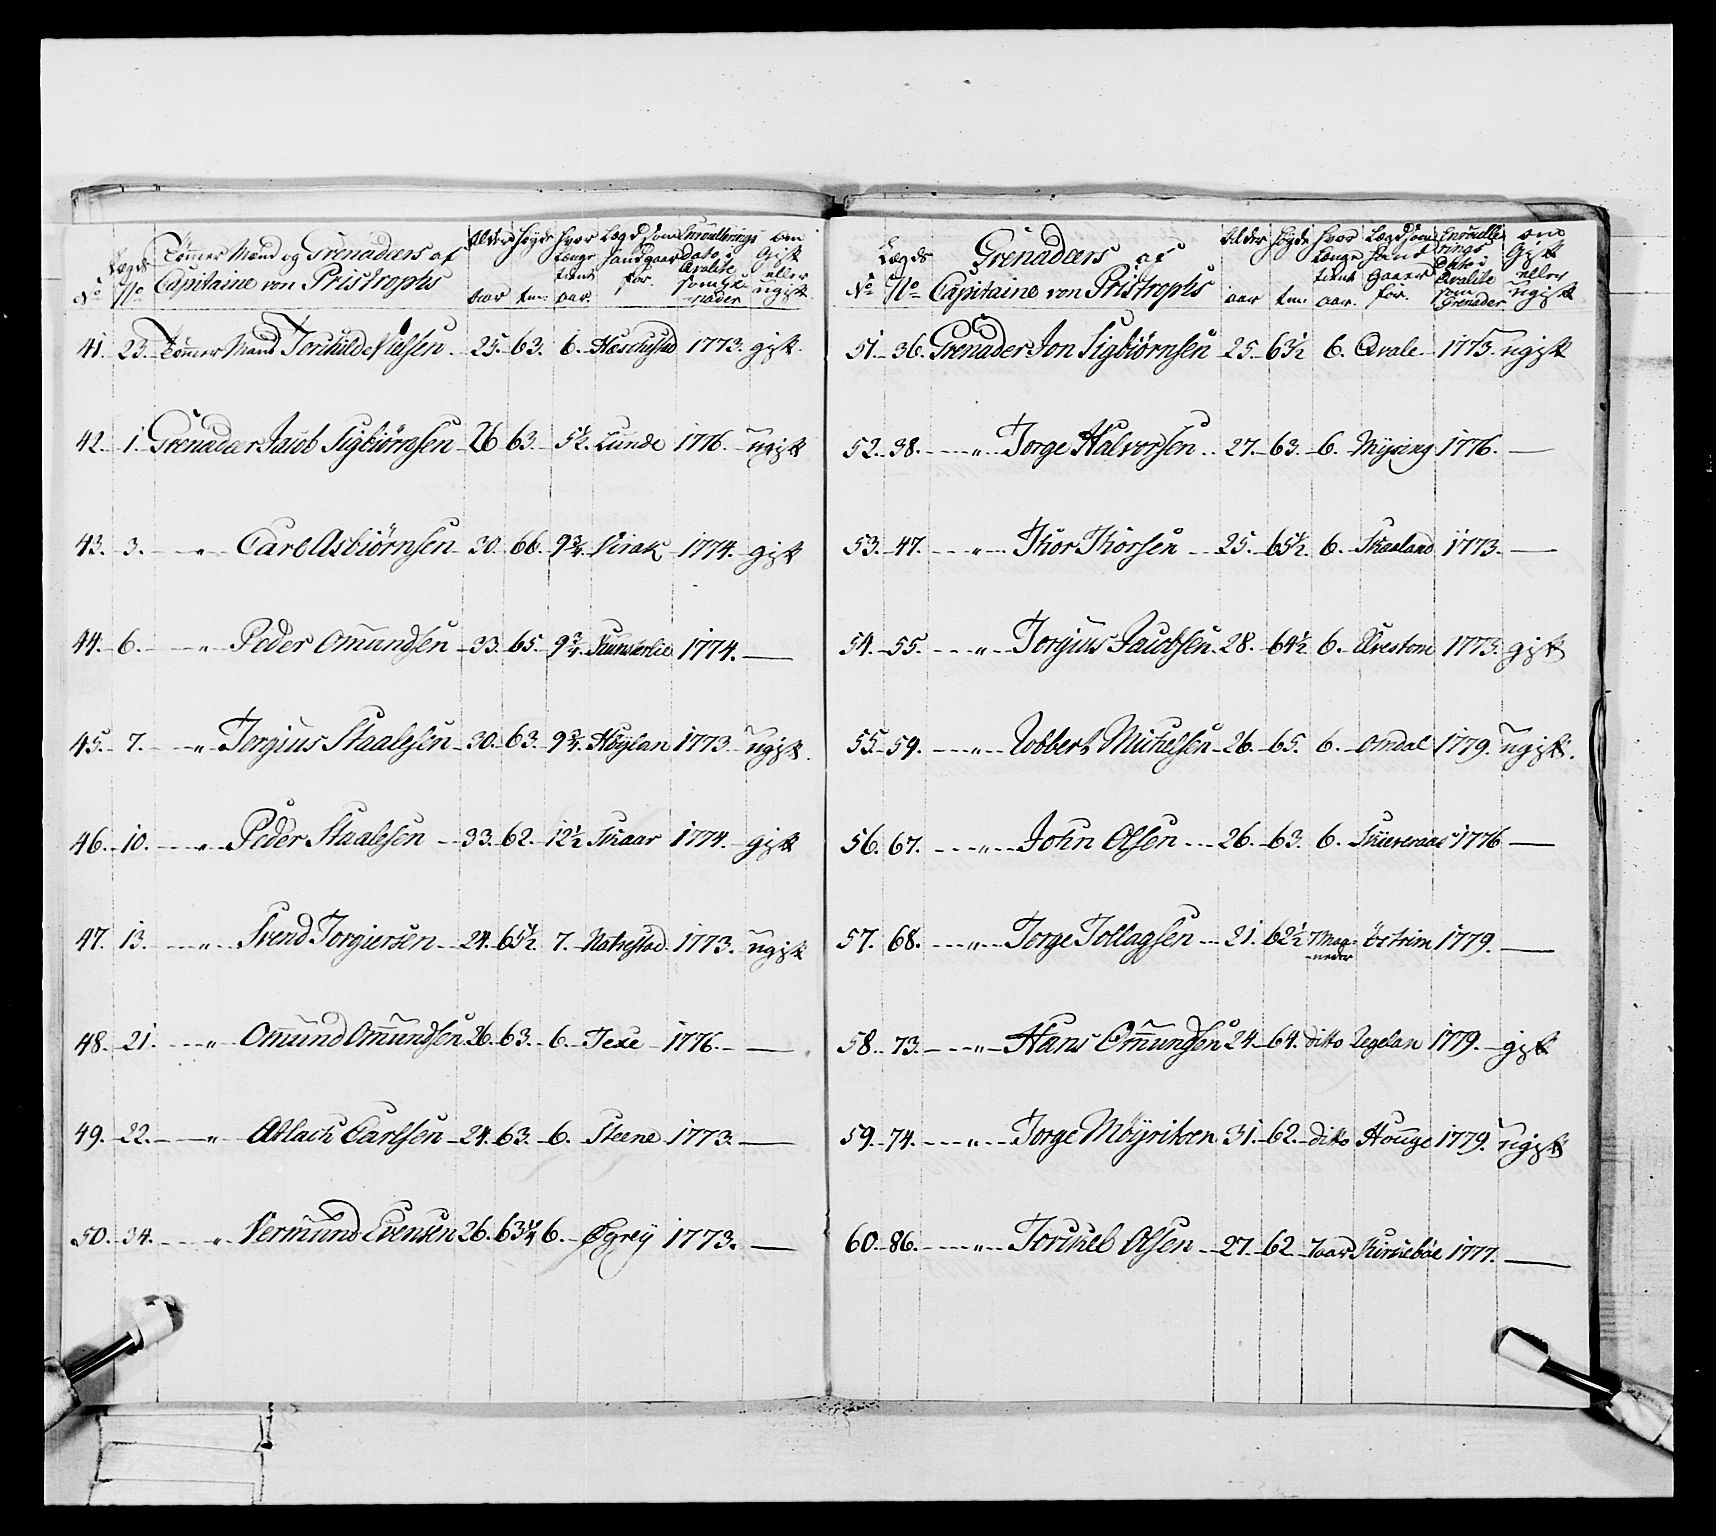 No Lægds No Tömmer Mand og Grenadeers af Capitaine von Pristrophs Alder aar Høyde tm: Hvor længe tient aar. Lægd som hand gaar for. Enroullerings Dato i Qvalite som Grenader om Gift eller ugift
41. 23. Tömmer Mand Torkild Nielsen 25. 63. 6. 1773. gift
42. 1. Grenadeer Jacob Sigbiörnsen 26 63. 5½ Lunde 1776. ugift
43. 3. " Carl Asbiörnsen 30. 66. 9¾ Virak 1774. gift
44. 6. " Peder Omundsen 33. 65. 9¾ 1774. —
45. 7. " Torgius Staalesen 30. 63. 9¾ Höylan 1773. ugift.
46. 10. " Peder Staalesen 33. 62. 12½ Skaar 1774. gift
47. 13. " Svend Torgiersen 24. 65½ 7. Natvestad 1773. ugift
48. 21. " Omund Omundsen 26. 63. 6. Texe 1776. —
49. 22. " Atlach Carlsen 24. 63. 6. Steene 1773. —
50. 34. " Vermund Evensen 26. 63¼ 6. Øgrey 1773. —
No Lægds No Grenadeers af Capitaine von Pristrophs Alder aar Høyde tm: Hvor længe tient aar. Lægd som hand gaaer for. Enroullerings Dato i Qvalite som Grenader om Gift eller ugift
51. 36. Grenader Jon Sigbiörnsen 25. 63½ 6. Qvale 1775. ugift
52. 38. " Torge Halvorsen 27. 63. 6. Mysing 1776. —
53. 47. " Thor Thorsen 25. 65½ 6. Skaaland 1773. —
54. 55. " Torgius Jacobsen 28. 64½ 6. Urestom 1773. gift
55. 59. " Robbert Michelsen 26. 65. 6. Omdal 1779. ugift.
56. 67. " John Olsen 26. 63. 6. 1776 —
57. 68. " Torge Tollagsen 21. 62½ 7 Maaneder östrim 1779. —
58. 73. " Hans Omundsen 24. 64. ditto Regelan 1779. gift
59. 74. " Torge Möyriksen 31. 62. dito Houge 1779. ugift
60. 86. " Torkel Olsen 27. 62. 7 aar Kirkebôe 1777. —